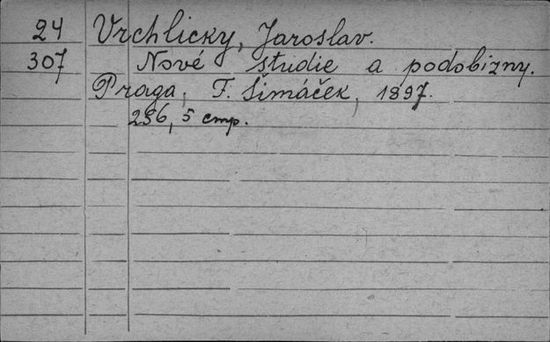 24 Vrchlicky, Jaroslav.
307 Nové studie a podobizny.
Praga, F. Šimáček, 1897.
286, 5 cmp.